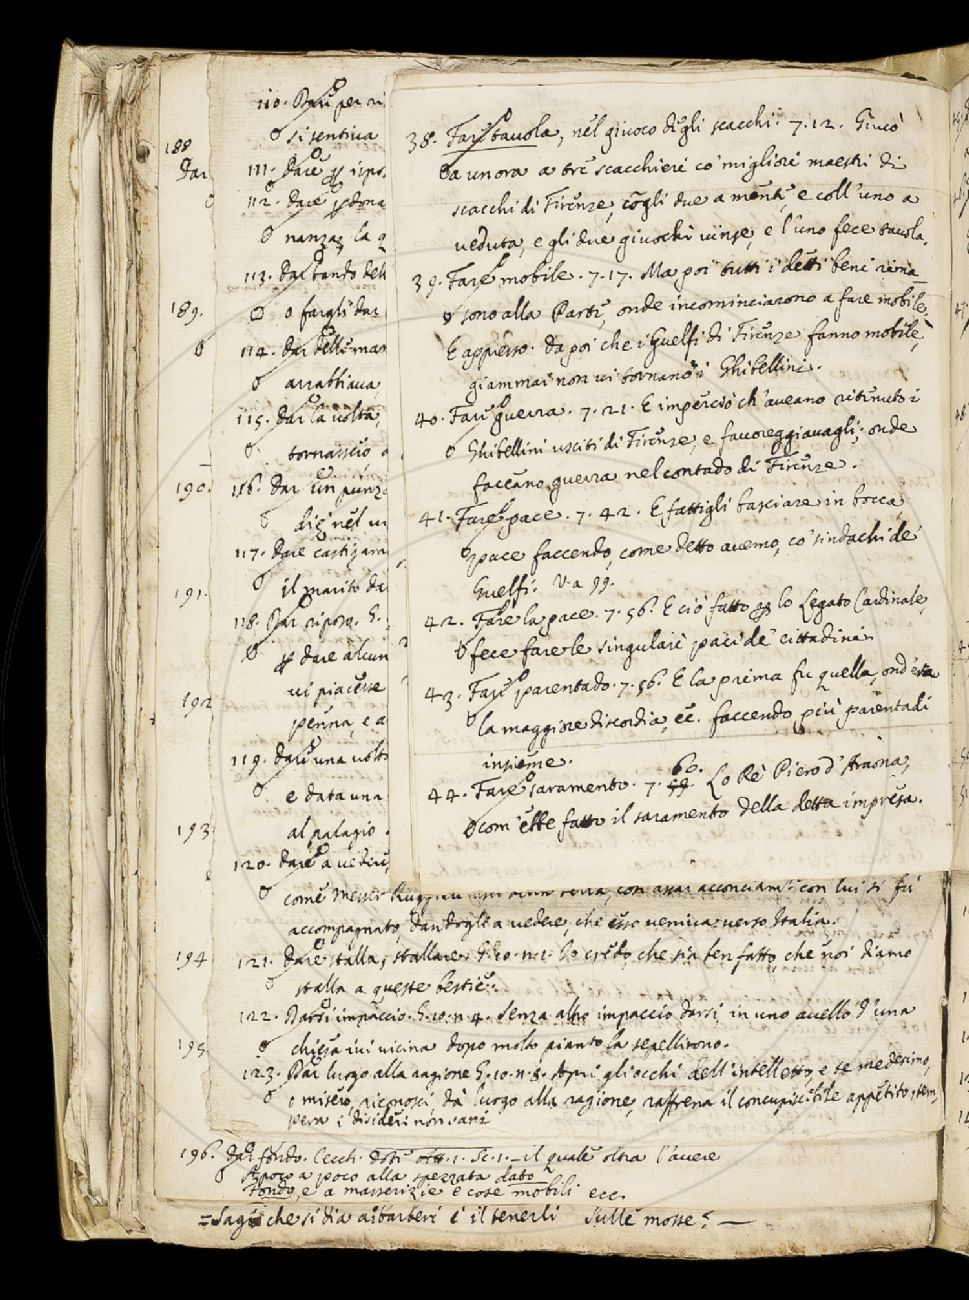 110. Dare per ri
si sentiva
188
Dar
111. dare ꝑ ripos
112. dare ꝑ dona
nanza; la q
113. dar bando dell
189.
o fargli dar
114. dar delle man
arrabbiava
115. dar la volta,
tornassero
190.
116. dar un punzo
die' nel
117. dare castigam
191.
il marito da
118. Dar riposo. G.
ꝑ dare alcun
192
vi piacesse
penna, e a
119. dare una volta
e data una
193
al palagio
120. dare a vedere,
38. Fare tavola, nel giuoco degli scacchi. 7.12. Giucò
a un'ora a tre scacchieri co' migliori maestri di
scacchi di Firenze, cõgli due a mente, e coll'uno a
veduta, e gli due giuochi vinse, e l'uno fece tavola.
39. Fare mobile. 7.17. Ma poi tutti i detti beni rima=
sono alla Parte, onde incominciarono a fare mobile.
E appresso. da poi che i Guelfi di Firenze fanno mobile,
giammai non vi tornano i Ghibellini.
40. Fare guerra. 7.21. E imperciò ch'aveano ritenuto i
Ghibellini usciti di Firenze, e favoreggiavagli; onde
faccano guerra nel contado di Firenze.
41. Fare pace. 7. 42. E fattigli basciare in bocca,
pace faccendo, come detto avemo, co' sindachi de'
Guelfi. V. a 99.
42. Fare la pace. 7. 56. E ciò fatto ꝑ lo Legato Cardinale,
fece fare le singulari paci de' cittadini.
43. Fare parentado. 7.56. E la prima fu quella, ond'era
la maggiore discordia, ec. faccendo più parentadi
insieme.
44. Fare saramento. 7. 59. 60. Lo Re Piero d'Araona,
com'ebbe fatto il saramento della detta impresa.
come Messer Ruggieri con assai acconciam.te con lui si fu
accompagnato, dandogli a vedere, che esso veniva verso Italia.
194
121. dare stalla, stallare. G.10.n.2. Io credo, che sia ben fatto, che noi diamo
stalla a queste bestie.
122. Darsi impaccio. G.10.n.4. Senza altro impaccio darsi, in uno avello d'una
195
chiesa ivi vicina dopo molto pianto la sepellirono.
123. Dar luogo alla ragione G.10.n.8. Apri gli occhi dell'intelletto, e te medesimo,
o misero, riconosci, dà luogo alla ragione, raffrena il concupiscibile appetito, tem,
pera i disideri non sani
196. dar fondo. Cecch. Dote att. 1. Sc. 1. — il quale oltra l'avere
A poco a poco alla spezzata dato
Fondo, e a masserizie e cose mobili ecc.
= Sagg che si dia a' barberi è il tenerli sulle mosse? —